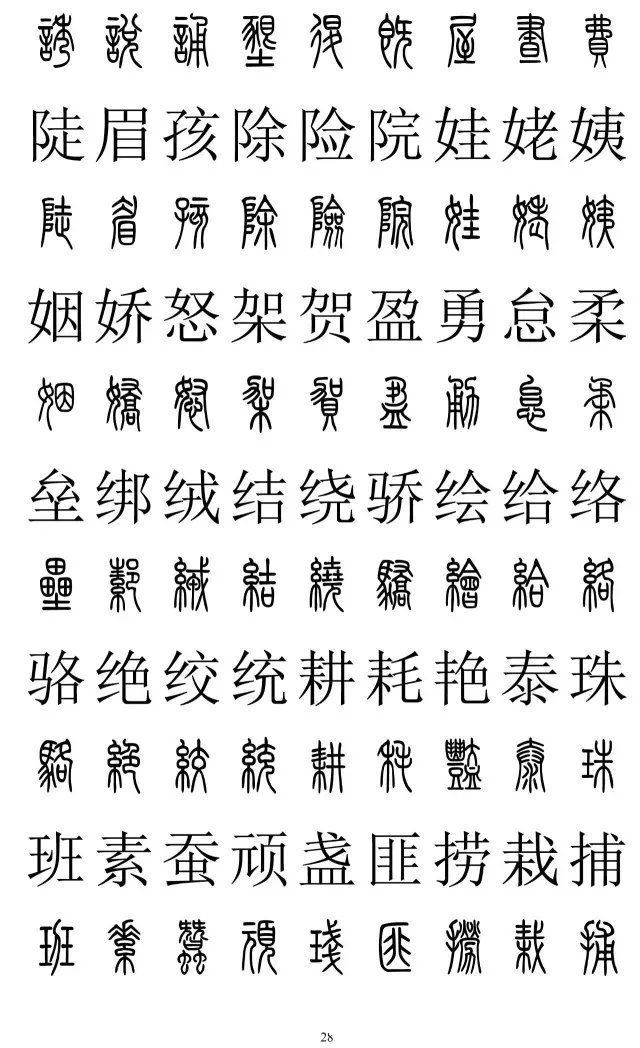 說誦墾退既屋晝費
陡眉孩除险院娃姥姨
陡眉孩除險院娃姨
姻娇怒架贺盈勇怠柔
姻嬌怒架賀盈勇怠柔
垒绑绒结绕骄绘给络
壘結繞驕繪給絡
骆绝绞统耕耗艳泰珠
駱絕絞統耕秏豔泰珠
班素蚕顽盏匪捞栽捕
班素蠶頑琖匪撈栽捕
28